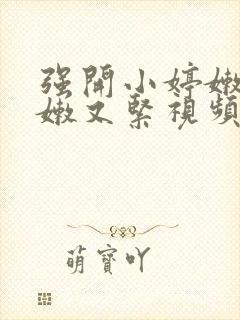 强開小婷嫩
嫩又緊視頻
萌寶吖